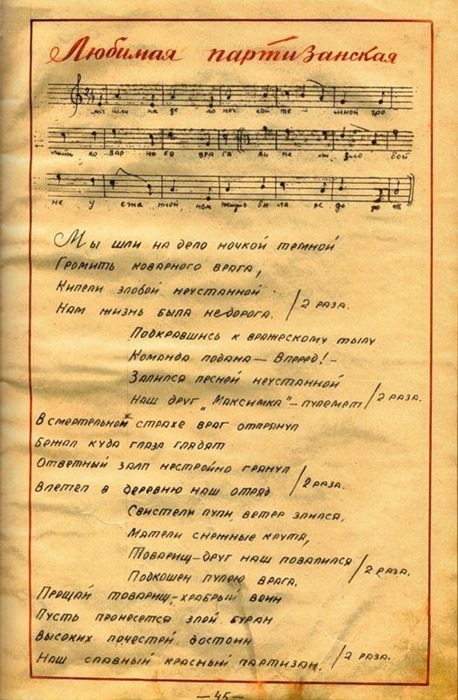 Любимая партизанская
мы шли на де ло ноч кой те - мной гро
мить ко вар но го вра га ки пе ли зло бой
не у ста нной, нам жизнь бы ла не до ро
Мы шли на дело ночкой темной
Громить коварного врага,
Кипели злобой неустанной
Нам жизнь была недорога. / 2 раза.
Подкравшись к вражескому тылу
Команда подана — Вперед! -
Залился песней неустанной
Наш друг „Максимка" - пулемет / 2 раза.
В смертельном страхе враг отпрянул
Бежал куда глаза глядят
Ответный залп нестройно грянул
Влетел в деревню наш отряд / 2 раза.
Свистели пули, ветер злился,
Мятели снежные крутя,
Товарищ-друг наш повалился
Подкошен пулею врага. / 2 раза.
Прощай товарищ,- храбрый воин
Пусть пронесется злой буран
Высоких почестей достоин
Наш славный красный партизан. / 2 раза.
— 45 —